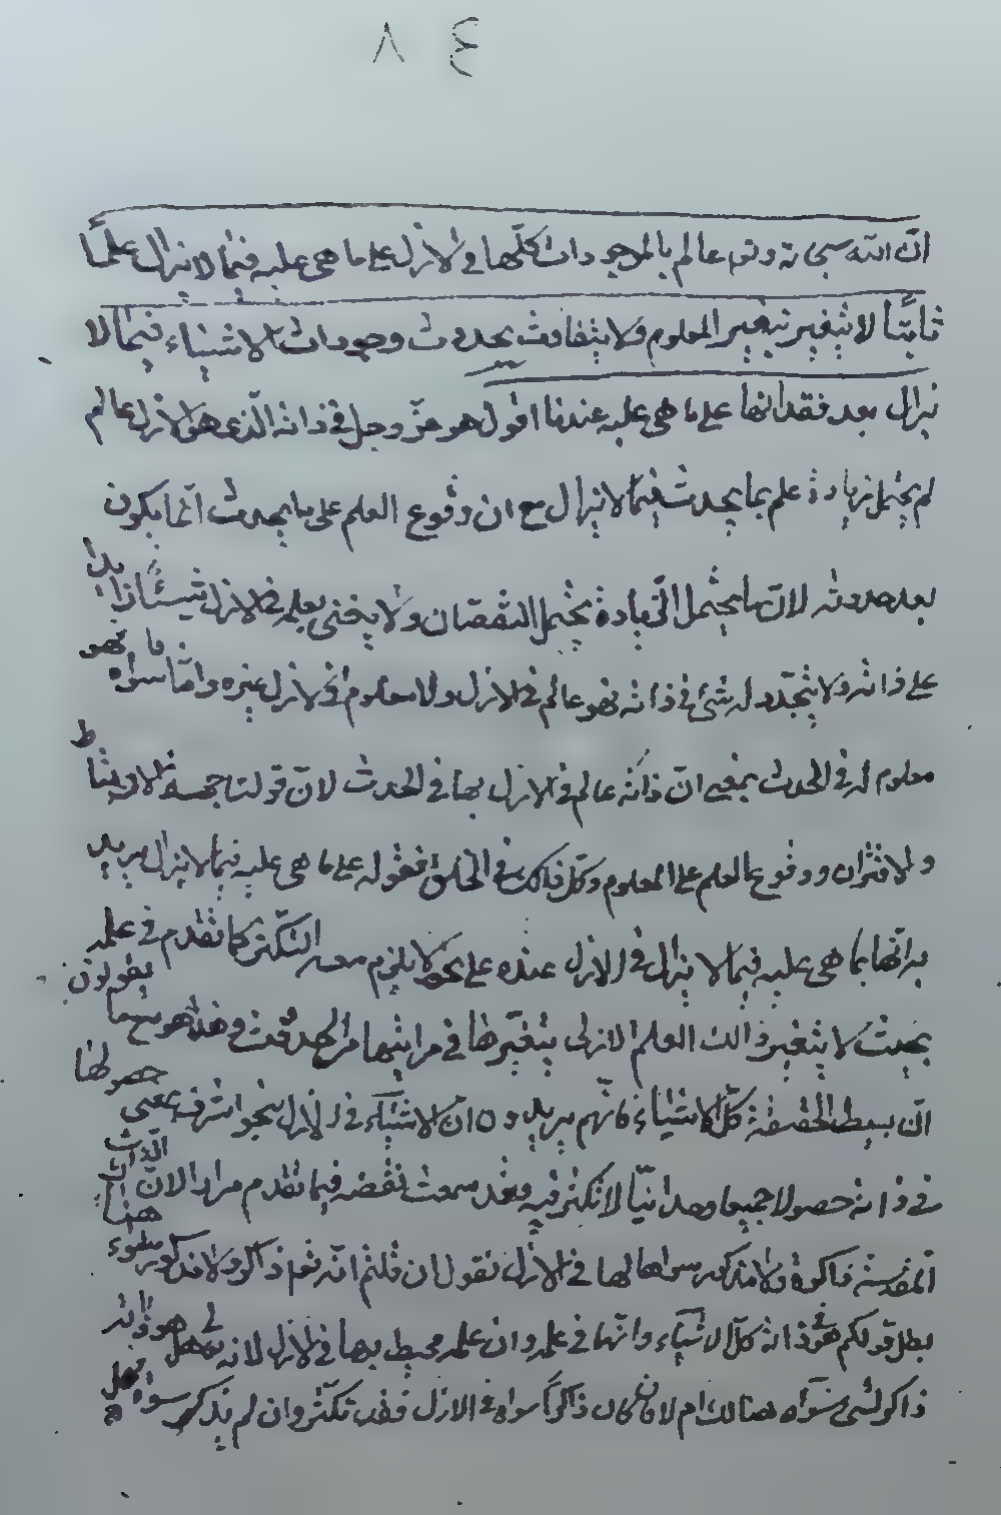 ٨٤
ان الله سبحانه وتعالى عالم بالموجودات كلها في الازل على ما هي عليه فيما لا يزال علما
ثابتا لا يتغير بتغير المعلوم ولا يتفاوت بحدوث وجودات الاشياء فيما لا
يزال بعد فقدانها على ما هي عليه عندنا اقول هو عز وجل في ذاته الذي هو الازل عالم
لم يحتمل زيادة علم بما يحدث فيما لا يزال مع ان وقوع العلم على ما يحدث انما يكون
بعد حدوثه لان ما يحتمل الزيادة يحتمل النقصان ولا يخفى بعلمه في الازل شيئا زايدا
على ذاته ولا يتجدد له شئ في ذاته فهو عالم في الازل ولا معلوم في الازل غيره واما ما سواه فهو
معلوم له في الحدث بمعنى ان ذاته عالم في الازل بها في الحدث لان قولنا جهة الارتباط
والاقتران ووقوع العلم على المعلوم وكل ذلك في الخلق فقوله على ما هي عليه فيما لا يزال يريد
به انها بما هي عليه فيما لا يزال في الازل عنده على نحو لا يلزم معه التكثر كما تقدم في علمه
بحيث لا يتغير ذالك العلم الازلي بتغيرها في مراتبها من الحدوث وهذا هو مع ما يقولون
ان بسيط الحقيقة كل الاشياء فانهم يريدون ان الاشياء في الازل بنحو اشرف يعني حصولها
في ذاته حصولا جمعيا وحدانيا لا تكثر فيه وقد سمعت نقضه فيما تقدم مرارا لان الذات
المقدسة ذاكرة ولا مذكور سواها لها في الازل نقول ان قلتم انه نعم ذاكر ولا مذكور سواه هناك
بطل قولكم هو في ذاته كل الاشياء وانها في علمه وان علمه محيط بها في الازل لانه هل هو في ذاته
ذاكر لشئ سواه هنالك ام لا فان كان ذاكرا سواه في الازل فقد تكثر وان لم يذكر سواه فهل